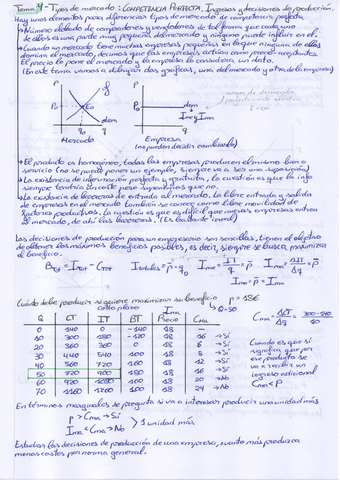 Tema 9 - Tipos de mercado: COMPETENCIA PERFECTA. Ingresos y decisiones de producción.
Hay unos elementos para diferenciar tipos de mercado de competencia perfecta
→ Número elevado de compradores y vendedores de tal forma que cada uno
de ellos es una parte muy pequeña del mercado y ninguno puede influir en él.
→ Cuando un mercado tiene muchas empresas pequeñas en la que ninguna de ellas
domina el mercado, decimos que las empresas actúan como precio aceptantes.
El precio lo pone el mercado y la empresa lo considera un dato.
(En este tema vamos a dibujar dos gráficas, una del mercado y otra de la empresa)
P
P0
E0
q0
q
Mercado
P
P0
dem
Ime = Ima
q
Empresa
(no pueden decidir cambiarlo)
curva de demanda
perfectamente elástica
→ El producto es homogéneo, todas las empresas producen el mismo bien o
servicio (no se puede poner un ejemplo, siempre va a ser una suposición)
→ La existencia de información perfecta y gratuita, la cuestión es que la info
siempre tendría un coste pero suponemos que no.
→ La existencia de barreras de entrada al mercado. La libre entrada y salida
de empresas en el mercado también se conoce como libre movilidad de
factores productivos. La cuestión es que es difícil que nuevas empresas entren
al mercado, de ahí las barreras. (Es bastante irreal)
Las decisiones de producción para un empresario son sencillas, tienen el objetivo
de obtener los máximos beneficios posibles, es decir, siempre se busca maximizar
el beneficio.
Ime = Ima = p̄
Cuánto debe producir si quiere maximizar su beneficio p = 18€
Q CT IT BT Precio Cma
0 140 0 -140 18 —
10 300 180 -120 18 16 → Sí
20 360 360 0 18 6 → Sí
30 440 540 100 18 8 → Sí
40 560 720 160 18 12 → Sí
50 720 900 180 18 16 → Sí
60 920 1080 160 18 20 → No
70 1160 1260 100 18 24 → No
Q=50
Cuando es que sí
significa que por
ese producto se
va a recibir un
ingreso adicional
Cma < P
En términos marginales se pregunta si va a interesar producir una unidad más
P > Cma → Sí
Ima < Cma → No
1 unidad más
Estudiar las decisiones de producción de una empresa, cuanto más produzca
menos costes por norma general.